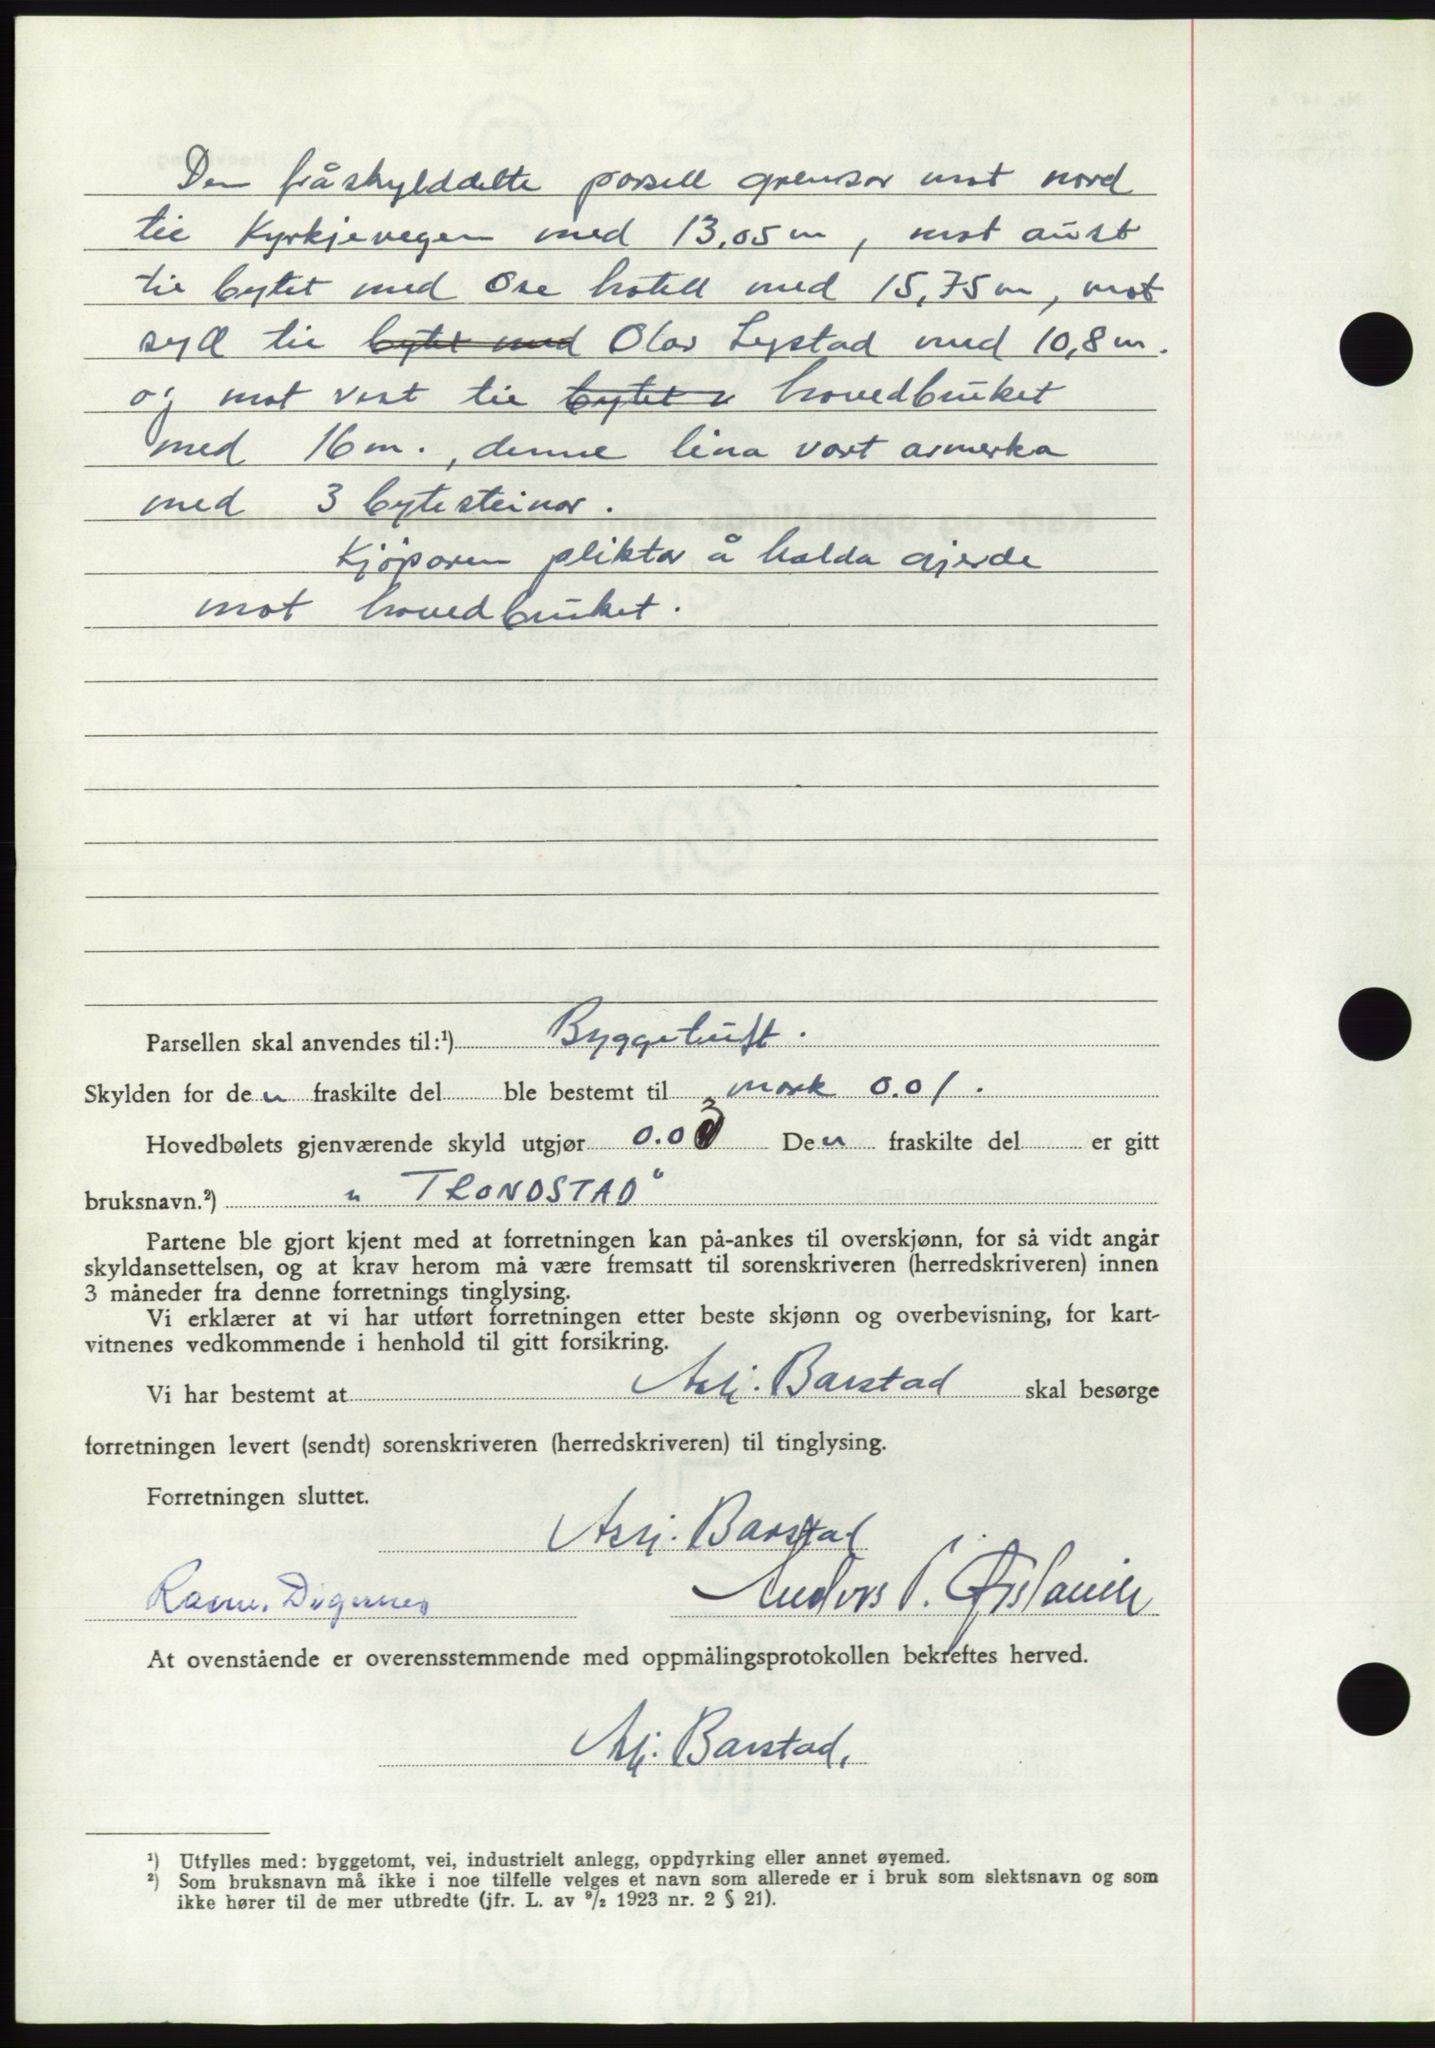 Den fråskylddelte parsell grensar mot nord
til Kyrkjevegen med 13,05 m, mot aust
til bytet med Ose hotell med 15,75 m, mot
syd til bytet med Olav Lystad med 10,8 m.
og mot vest til bytet hovedbruket
med 16 m., denne lina vart avmerka
med 3 bytesteinar.
Kjøparen pliktar å halda gjerde
mot hovedbruket.
Parsellen skal anvendes til:¹) Byggetuft.
Skylden for den fraskilte del ble bestemt til mark 0.01.
Hovedbølets gjenværende skyld utgjør 0.03 Den fraskilte del er gitt
bruksnavn.²) „TRONDSTAD"
Partene ble gjort kjent med at forretningen kan på-ankes til overskjønn, for så vidt angår
skyldansettelsen, og at krav herom må være fremsatt til sorenskriveren (herredskriveren) innen
3 måneder fra denne forretnings tinglysing.
Vi erklærer at vi har utført forretningen etter beste skjønn og overbevisning, for kart-
vitnenes vedkommende i henhold til gitt forsikring.
Vi har bestemt at Asbj. Barstad skal besørge
forretningen levert (sendt) sorenskriveren (herredskriveren) til tinglysing.
Forretningen sluttet.
Asbj. Barstad
Rasm. Digernes Anders P.
At ovenstående er overensstemmende med oppmålingsprotokollen bekreftes herved.
Asbj. Barstad.
¹) Utfylles med: byggetomt, vei, industrielt anlegg, oppdyrking eller annet øyemed.
²) Som bruksnavn må ikke i noe tilfelle velges et navn som allerede er i bruk som slektsnavn og som
ikke hører til de mer utbredte (jfr. L. av 9/2 1923 nr. 2 § 21).